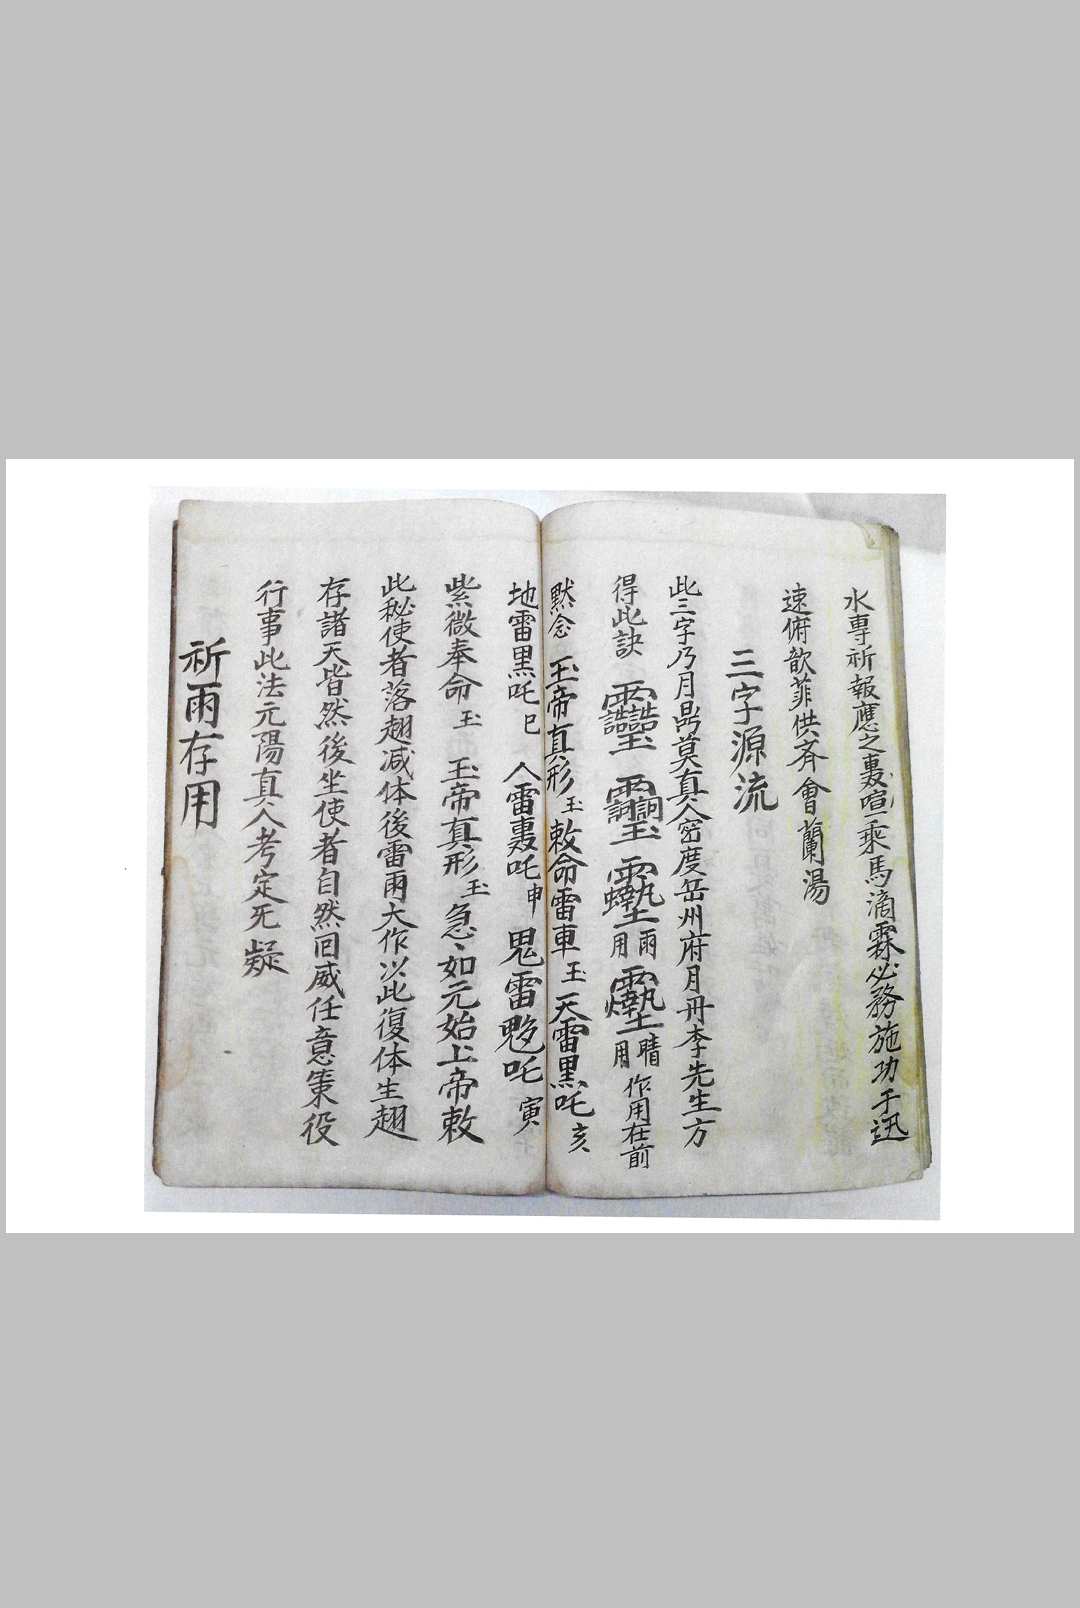 水專祈報應之轟喧乘馬滴霖必務施功于迅
速俯歆菲供斉會蘭湯
三字源流
此三字乃月鼎莫真人密度岳州府月丹李先生方
得此訣
用雨
用晴
作用在前
默念 玉帝真形玉敕命雷車玉天雷黑吒亥
地雷黑吒巳 人雷轟吒申 鬼雷吒寅
紫微奉命玉 玉帝真形玉急〻如元始上帝敕
此秘使者落翅減体後雷雨大作以此復体生翅
存諸天皆然後坐使者自然回威任意策役
行事此法元陽真人考定死疑
祈雨存用